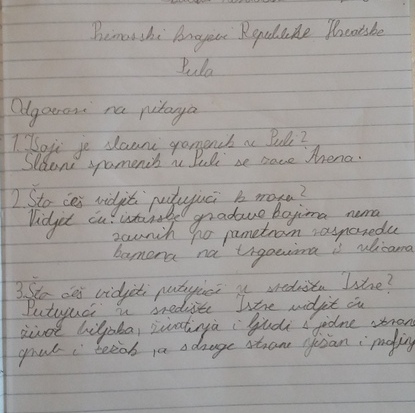 Primorski krajevi Republike Hrvatske
Pula
Odgovori na pitanja
1. Koji je slavni spomenik u Puli?
Slavni spomenik u Puli se zove Arena.
2. Što ćeš vidjeti putujući k moru?
Vidjet ću istarske gradove kojima nema
ravnih po pametnom rasporedu
kamena na trgovima i ulicama
3. Što ćeš vidjeti putujući u središte Istre?
Putujući u središte Istre vidjet ću
život biljaka, životinja i ljudi s jedne strane
grub i težak, a s druge strane nježan i